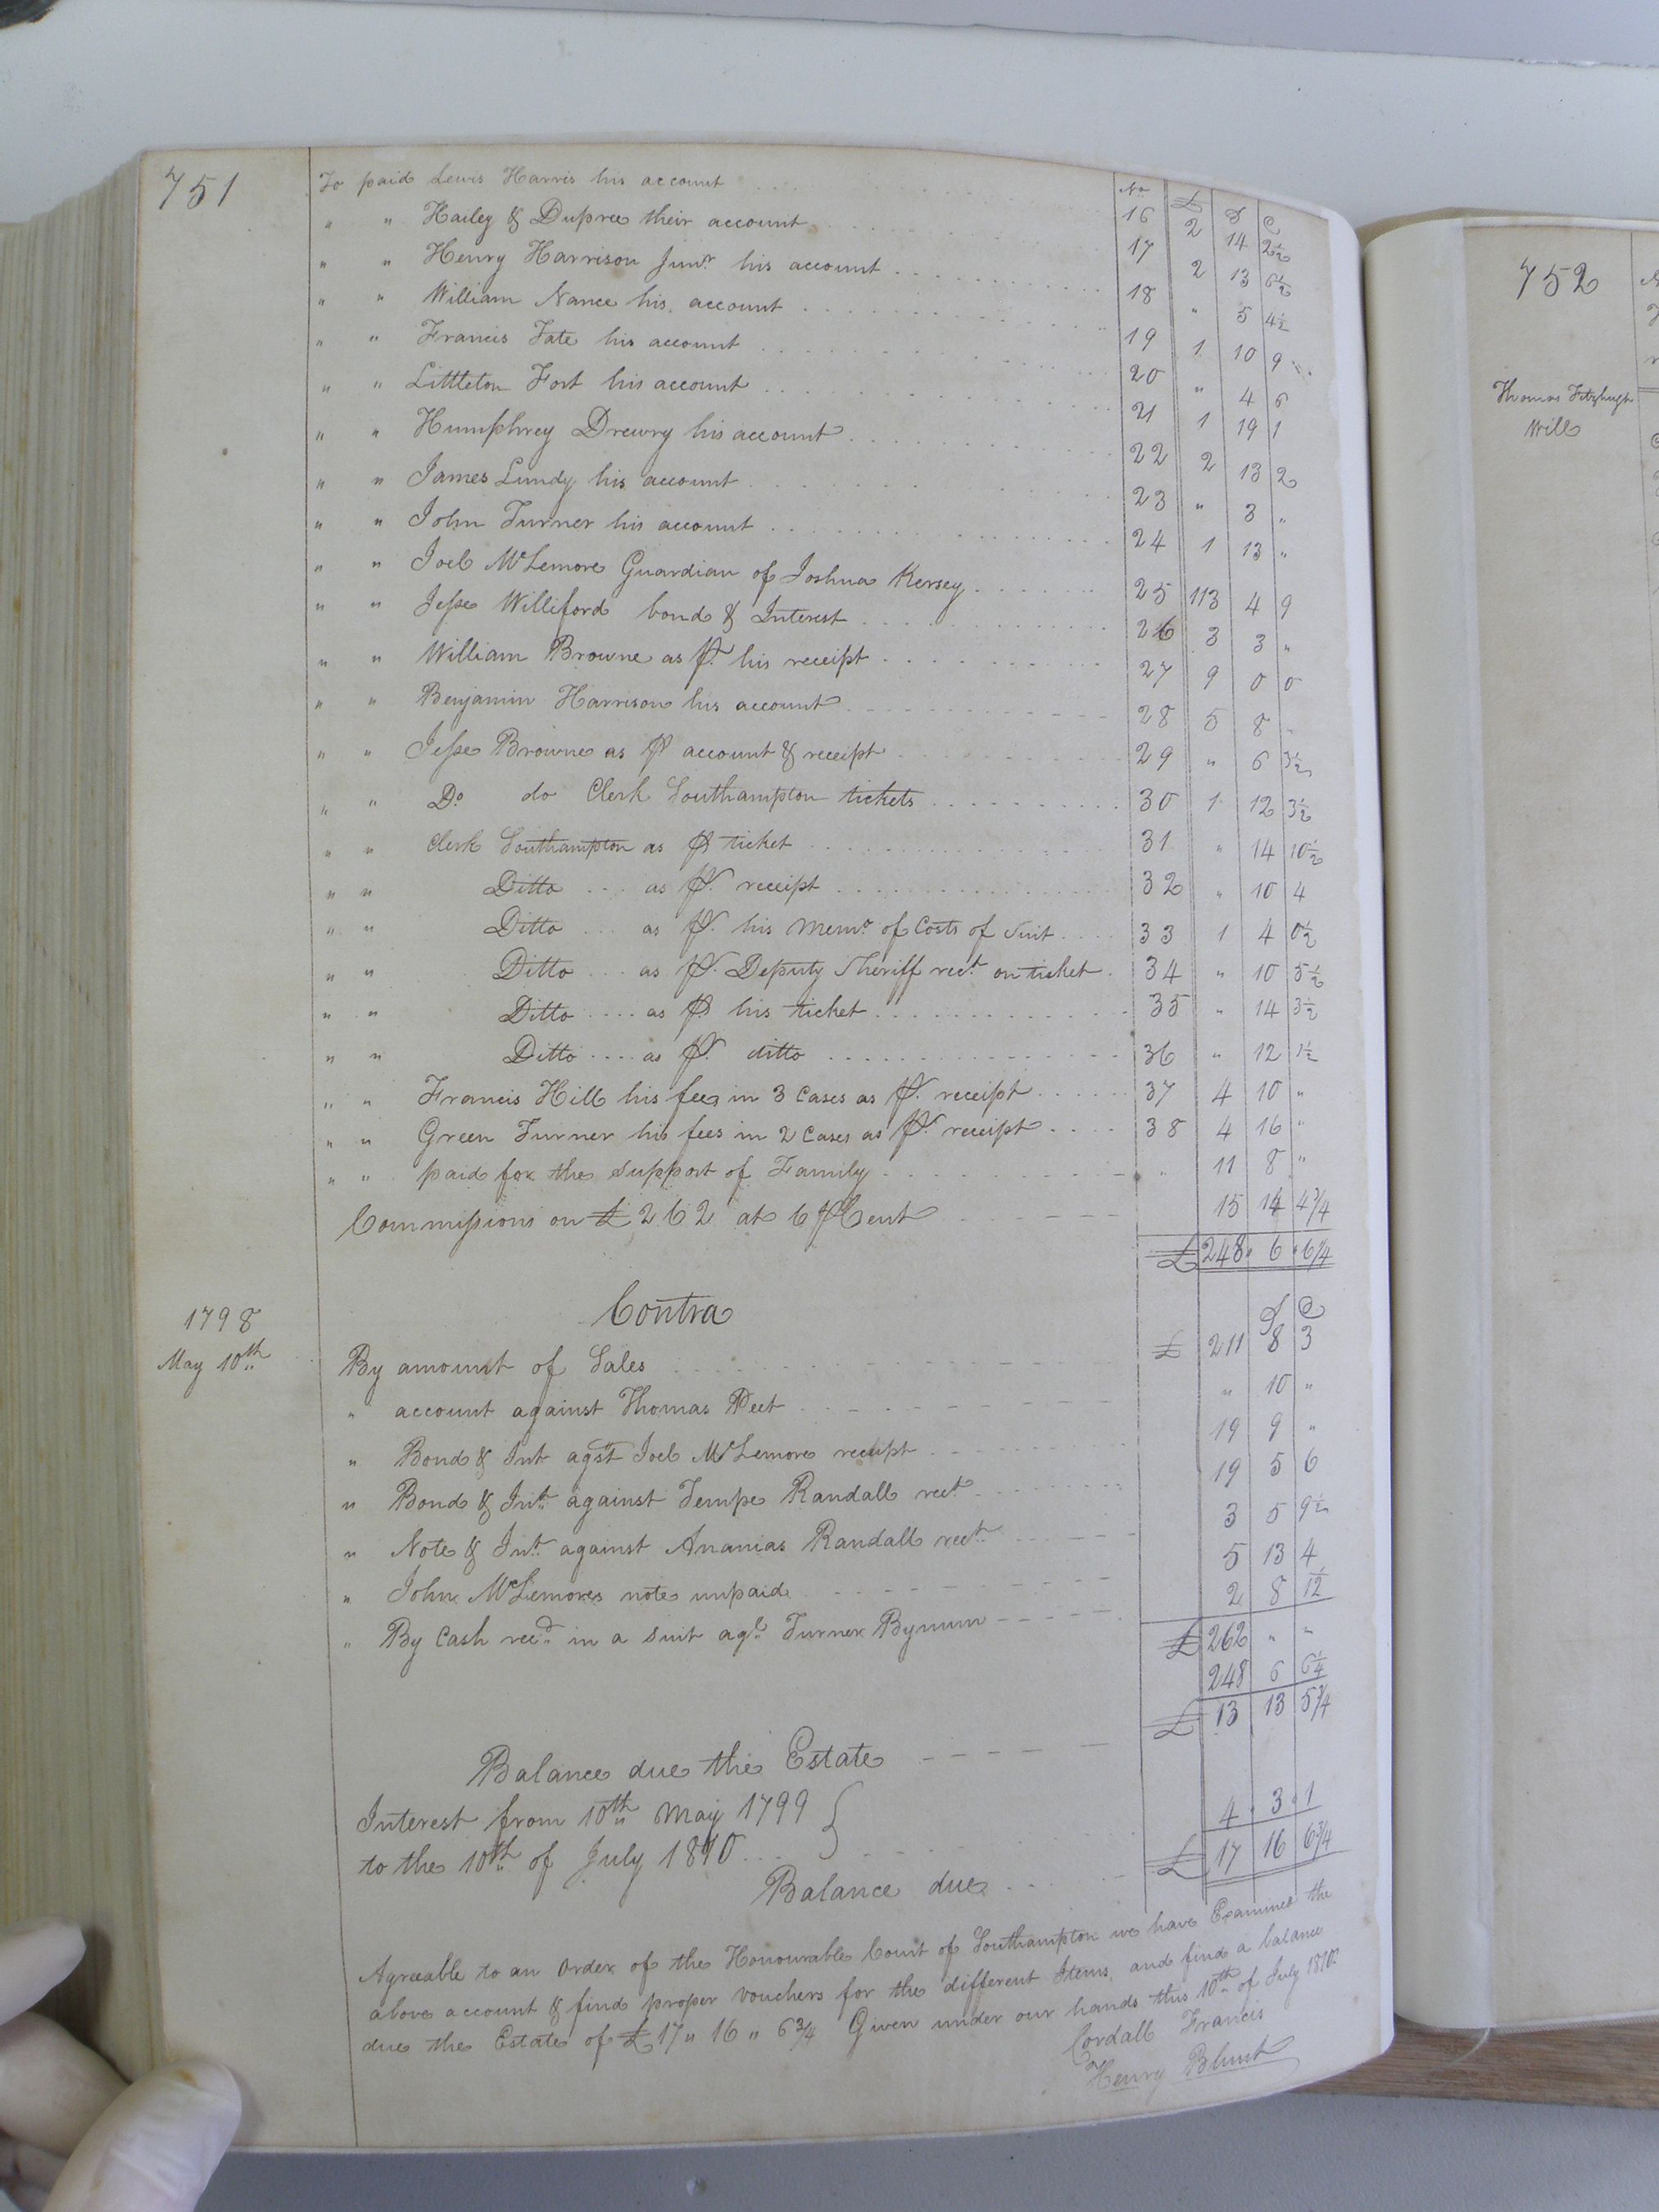 751
No £ S D
To paid Lewis Harris his account 16 2 14 2½
" " Hailey & Dupree their account 17 2 13 6½
" " Henry Harrison Junr his account 18 " 5 4½
" " William Nance his account 19 1 10 9
" " Francis Tate his account 20 " 4 6
" " Littleton Fort his account 21 1 19 1
" " Humphrey Drewry his account 22 2 13 2
" " James Lundy his account 23 " 3 "
" " John Turner his account 24 1 13 "
" " Joel McLemore Guardian of Joshua Kersey 25 113 4 9
" " Jesse Williford bond & Interest 26 3 3 "
" " William Browne as ⅌ his receipt 27 9 0 0
" " Benjamin Harrison his account 28 5 8 "
" " Jesse Browne as ⅌ account & receipt 29 " 6 3½
" " Do do Clerk Southampton tickets 30 1 12 3½
" " Clerk Southampton as ⅌ ticket 31 " 14 10½
" " Ditto as ⅌ receipt 32 " 10 4
" " Ditto as ⅌ his Memo of Costs of Suit 33 1 4 0½
" " Ditto as ⅌ Deputy Sheriff rect on ticket 34 " 10 5½
" " Ditto as ⅌ his ticket 35 " 14 3½
" " Ditto as ⅌ ditto 36 " 12 1½
" " Francis Hill his fees in 3 Cases as ⅌ receipt 37 4 10 "
" " Green Turner his fees in 2 Cases as ⅌ receipt 38 4 16 "
" " paid for the support of Family " 11 8 "
Commissions on £262 at 6 ⅌ Cent 15 14 4¾
£ 248 " 6 " 6¼
Contra S D
1798
May 10th By amount of Sales £ 211 8 3
" account against Thomas Peet " 10 "
" Bond & Int agst Joel McLemore receipt 19 9 "
" Bond & Int against Tempe Randall rect 19 5 6
" Note & Int against Ananias Randall rect 3 5 9½
" John McLemores note unpaid 5 13 4
" By Cash recd in a suit agt Turner Bynum 2 8 1½
£ 262 " "
248 6 6¼
Balance due the Estate £ 13 13 5¾
Interest from 10th May 1799
to the 10th of July 1810 4 " 3 " 1
Balance due £ 17 16 6¾
Agreeable to an Order of the Honourable Court of Southampton we have Examined the
above account & find proper vouchers for the different Items, and find a balance
due the Estate of £17 " 16 " 6¾ Given under our hands this 10th of July 1810
Cordall Francis
Henry Blunt
752
Thomas Fitzhugh
Will